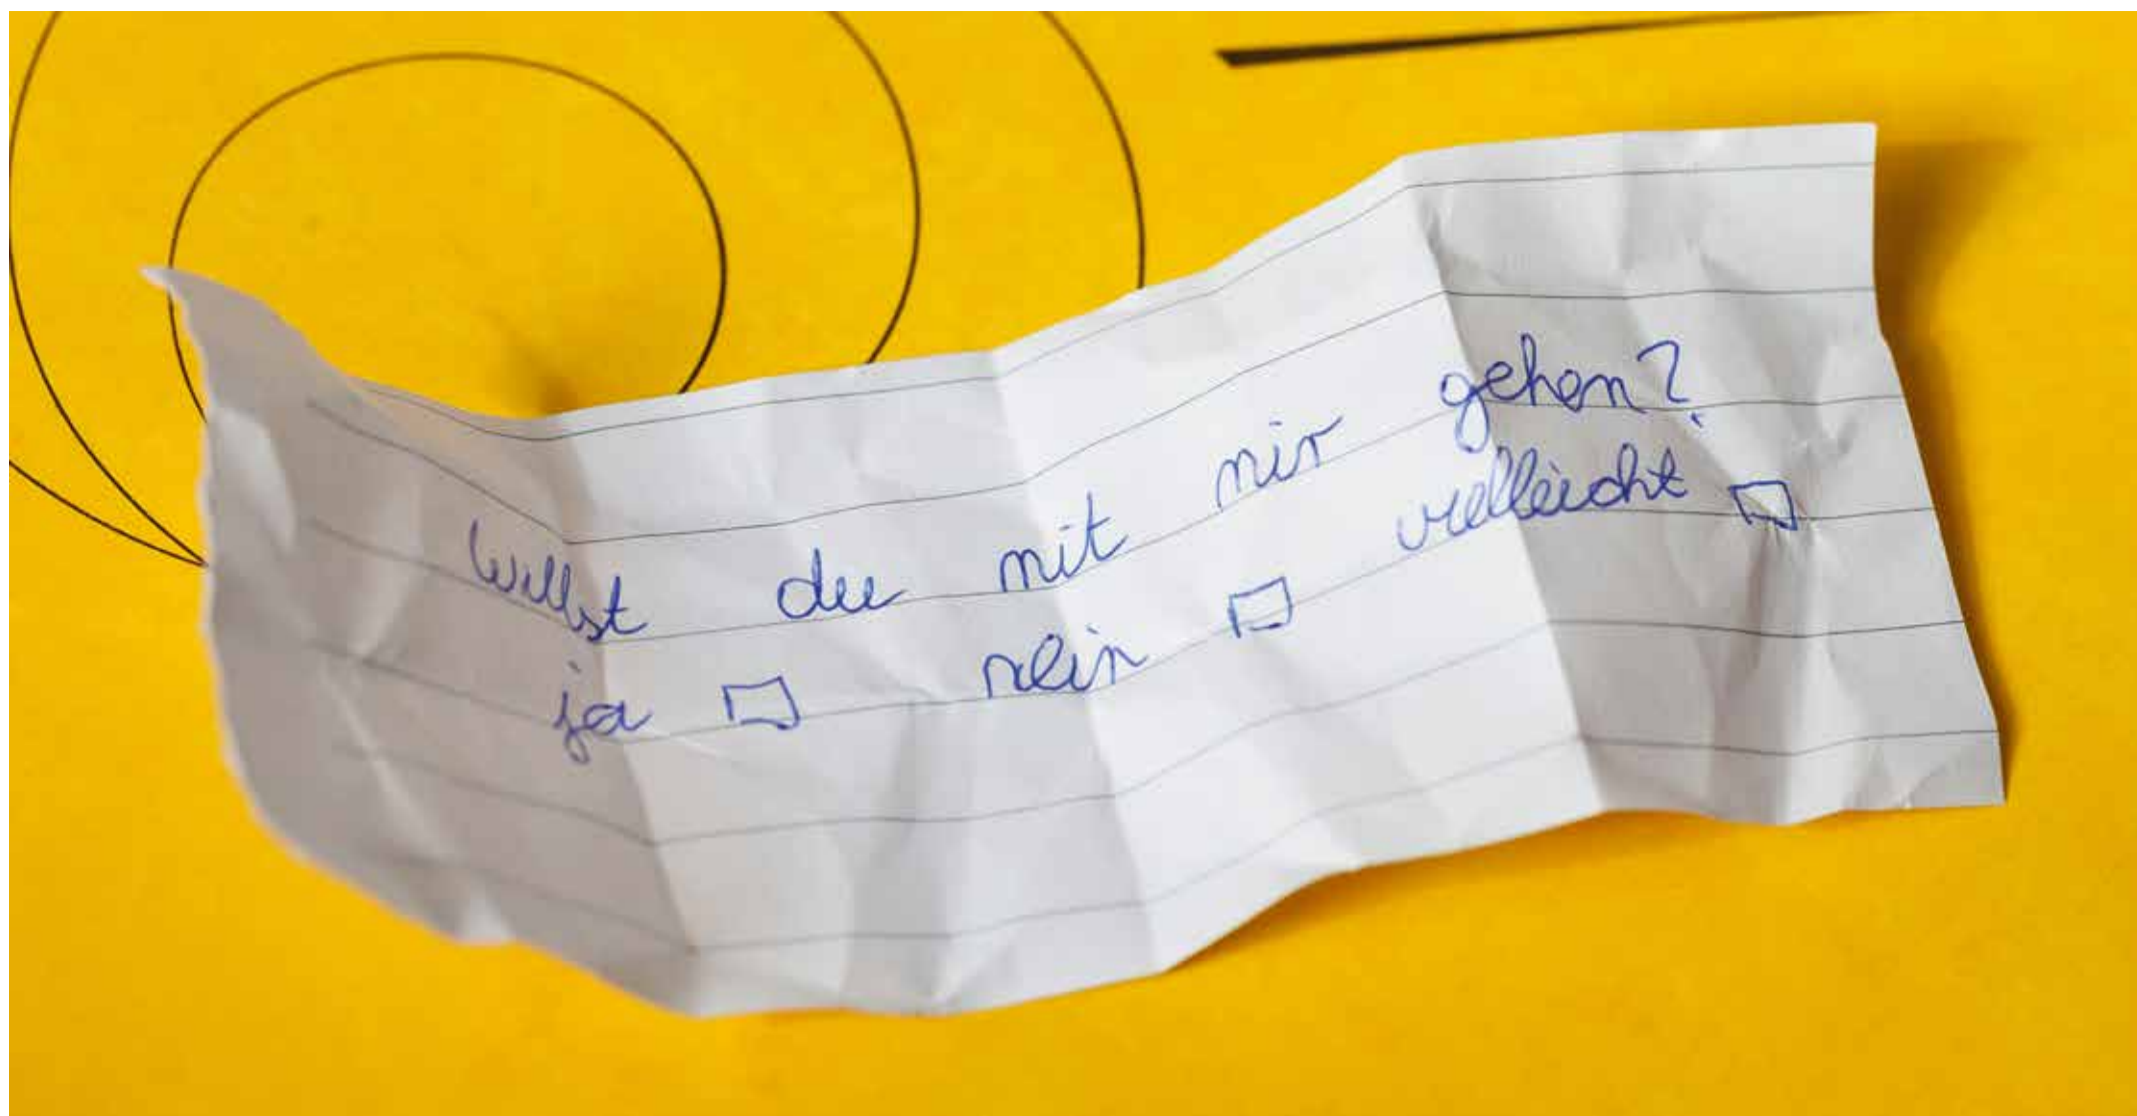 Willst du mit mir gehen?
ja ☐ nein ☐ vielleicht ☐